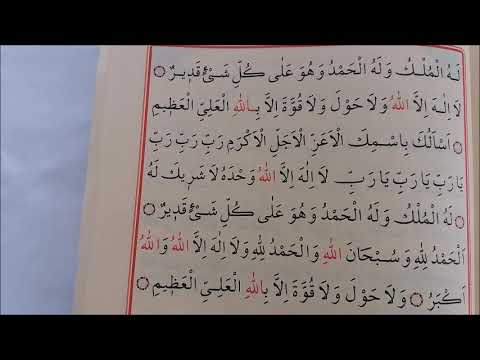 لَهُ الْمُلْكُ وَلَهُ الْحَمْدُ وَهُوَ عَلٰى كُلِّ شَىْءٍ قَدِيرٌ ۝
لَا اِلٰهَ اِلَّا اللهُ وَلَا حَوْلَ وَلَا قُوَّةَ اِلَّا بِاللهِ الْعَلِىِّ الْعَظِيمِ
۝ اَسْاَلُكَ بِاسْمِكَ الْاَعَزِّ الْاَجَلِّ الْاَكْرَمِ رَبِّ رَبِّ رَبِّ
يَا رَبِّ يَا رَبِّ يَا رَبِّ لَا اِلٰهَ اِلَّا اللهُ وَحْدَهُ لَا شَرِيكَ لَهُ
۝ لَهُ الْمُلْكُ وَلَهُ الْحَمْدُ وَهُوَ عَلٰى كُلِّ شَىْءٍ قَدِيرٌ ۝
اَلْحَمْدُ لِلّٰهِ وَسُبْحَانَ اللهِ وَالْحَمْدُ لِلّٰهِ وَلَا اِلٰهَ اِلَّا اللهُ وَاللهُ
اَكْبَرُ ۝ وَلَا حَوْلَ وَلَا قُوَّةَ اِلَّا بِاللهِ الْعَلِىِّ الْعَظِيمِ ۝